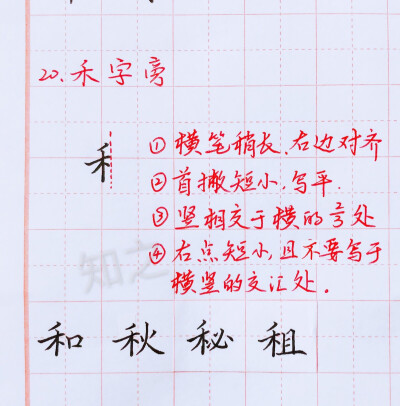 20.禾字旁
禾
①横笔稍长、右边对齐
②首撇短小,写平.
③竖相交于横的2/3处
④右点短小,且不要写于
横竖的交汇处.
和 秋 秘 租